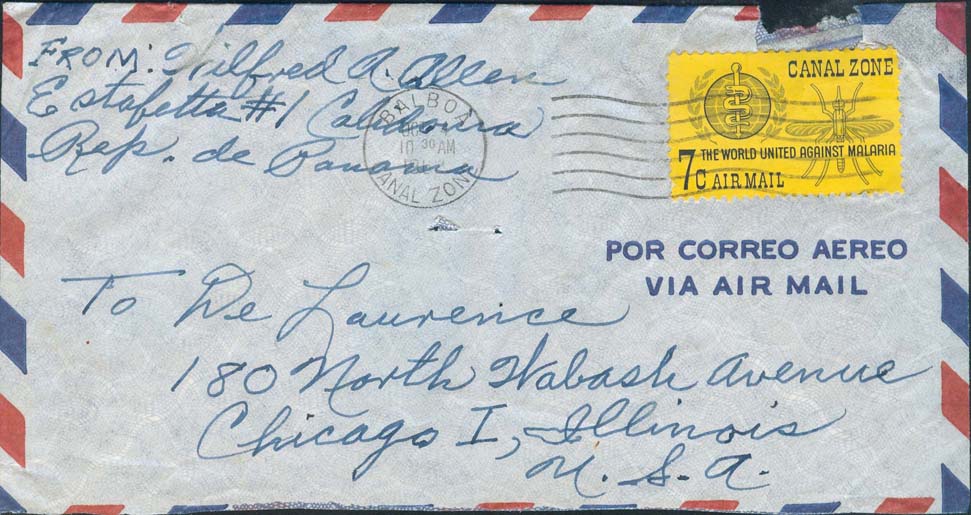 FROM: Wilfred A. Allen
Estafetta #1 Calidonia
Rep. de Panama
BALBOA
10 30 AM
CANAL ZONE
CANAL ZONE
THE WORLD UNITED AGAINST MALARIA
7c AIR MAIL
POR CORREO AEREO
VIA AIR MAIL
To De Laurence
180 North Wabash Avenue
Chicago I, Illinois
U. S. A.